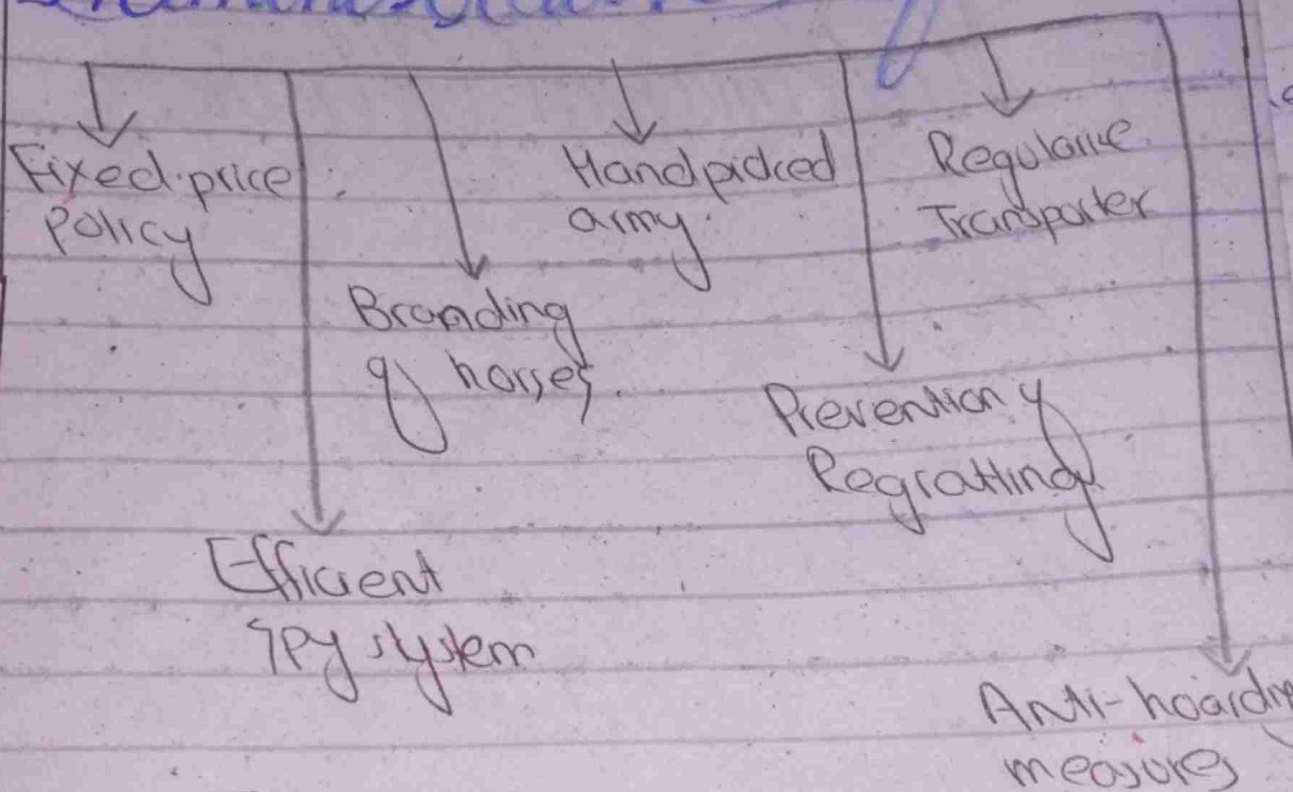 Fixed price
Policy
Efficient
spy system
Branding
of horses.
Handpicked
army.
Prevention of
Regratting
Regularise
Transporter
Anti-hoarding
measures